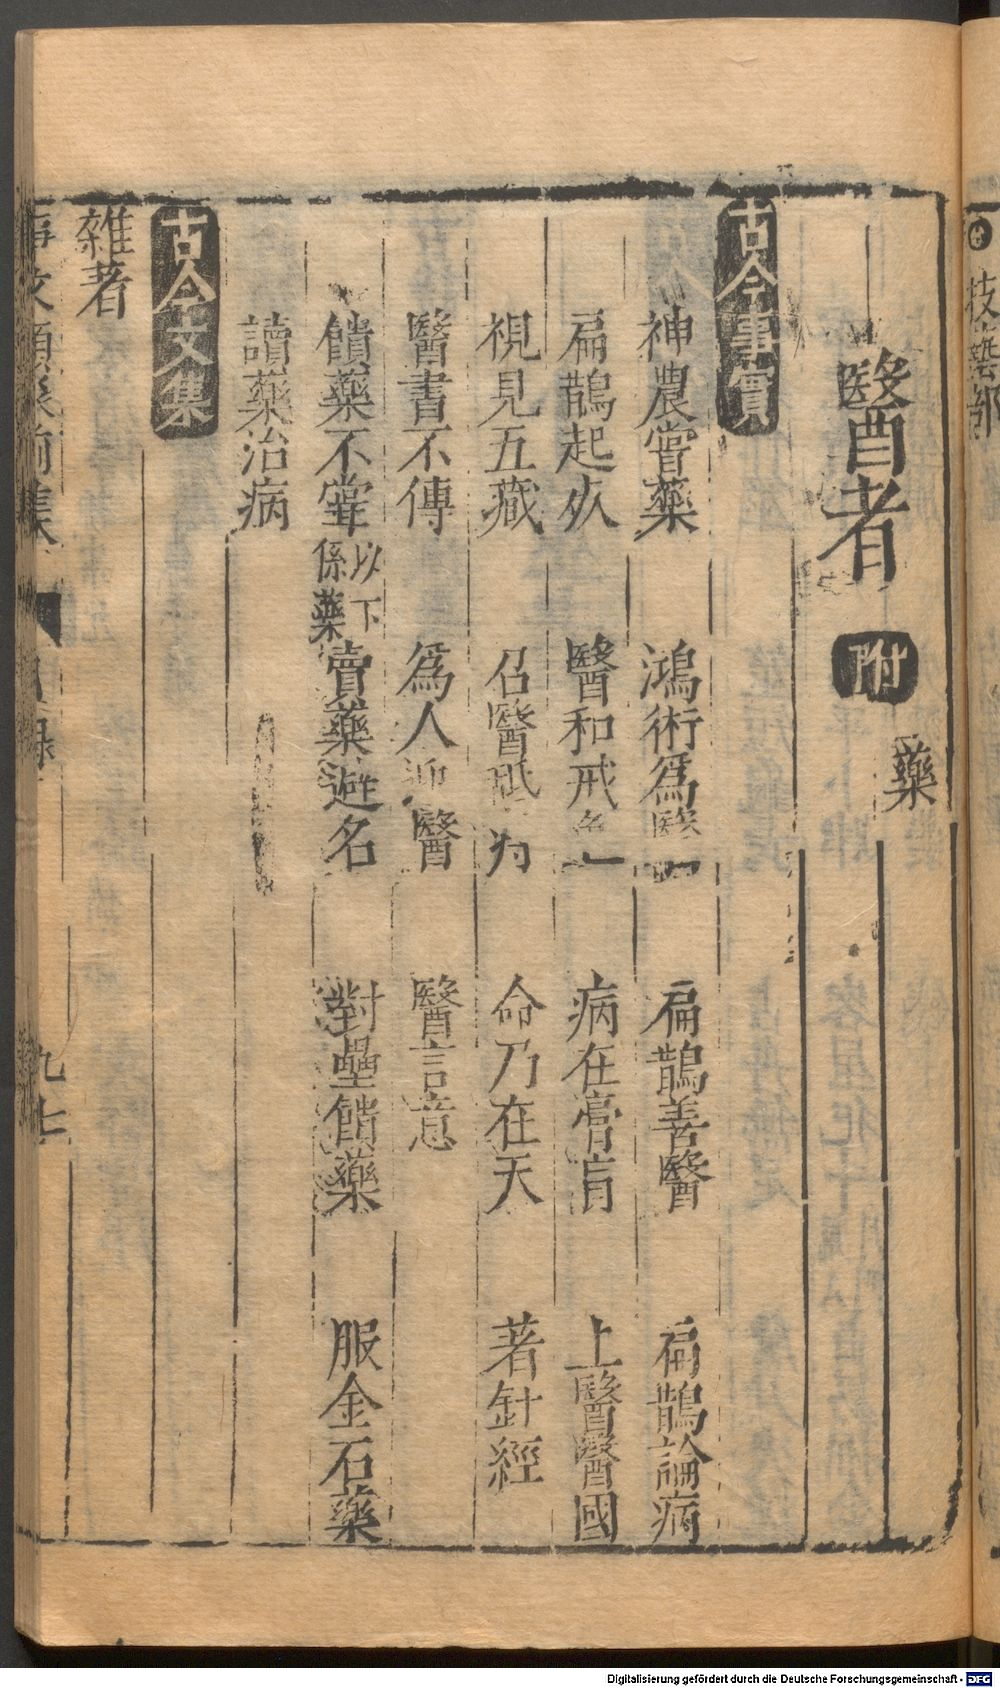 醫者 附 藥
古今事實
神農嘗藥 鴻術爲醫 扁鵲善醫 扁鵲論病
扁鵲起 醫和戒 病在膏肓 上醫醫國
視見五藏 召醫 为 命乃在天 著針經
醫書不傳 爲人迎醫 醫言意
饋藥不嘗 以下係藥 賣藥避名 對壘饋藥 服金石藥
讀藥治病
古今文集
雜著
事文類聚前集 目録 九七
技藝部
Digitalisierung gefördert durch die Deutsche Forschungsgemeinschaft - DFG